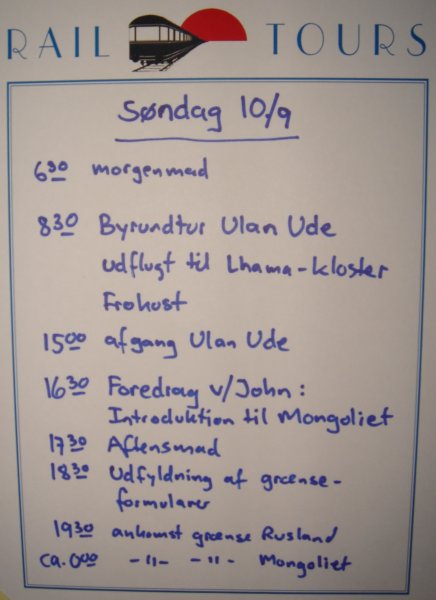 RAIL TOURS
Søndag 10/9
6³⁰ morgenmad
8³⁰ Byrundtur Ulan Ude
udflugt til Lhama-kloster
Frokost
15⁰⁰ afgang Ulan Ude
16³⁰ Foredrag v/John:
Introduktion til Mongoliet
17³⁰ Aftensmad
18³⁰ Udfyldning af grænse-
formularer
19³⁰ ankomst grænse Rusland
ca. 0⁰⁰ -"- -"- Mongoliet